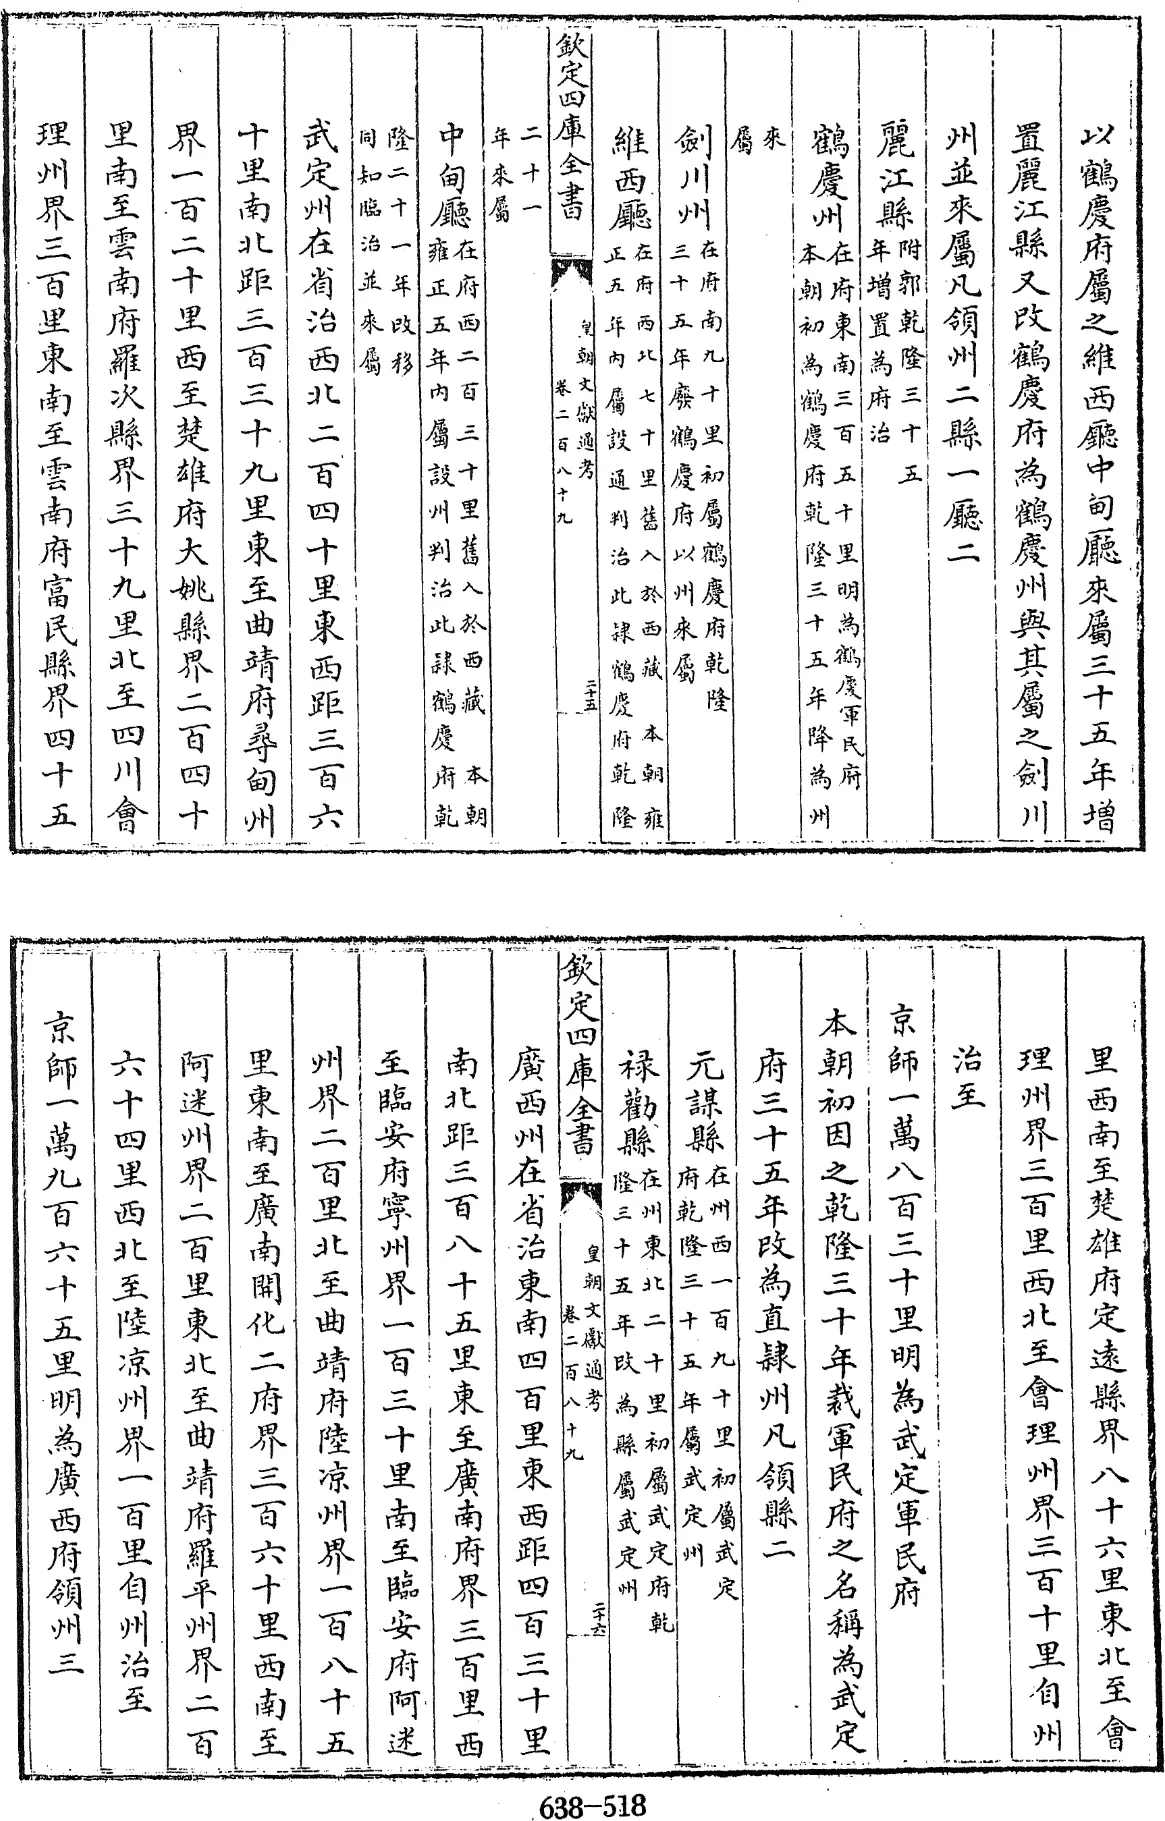 以鶴慶府屬之維西廳中甸廳來屬三十五年増
置麗江縣又改鶴慶府為鶴慶州與其屬之劍川
州並來屬凡領州二縣一廳二
麗江縣附郭乾隆三十五
年増置為府治
鶴慶州在府東南三百五十里明為鶴慶軍民府
本朝初為鶴慶府乾隆三十五年降為州
來
屬
劍川州在府南九十里初屬鶴慶府乾隆
三十五年廢鶴慶府以州來屬
維西廳在府西北七十里舊入於西藏 本朝雍
正五年內屬設通判治此隸鶴慶府乾隆
欽定四庫全書
皇朝文獻通考
卷二百八十九
二十五
二十一
年來屬
中甸廳在府西二百三十里舊入於西藏 本朝
雍正五年內屬設州判治此隸鶴慶府乾
隆二十一年改移
同知臨治並來屬
武定州在省治西北二百四十里東西距三百六
十里南北距三百三十九里東至曲靖府尋甸州
界一百二十里西至楚雄府大姚縣界二百四十
里南至雲南府羅次縣界三十九里北至四川會
理州界三百里東南至雲南府富民縣界四十五
里西南至楚雄府定遠縣界八十六里東北至會
理州界三百里西北至會理州界三百十里自州
治至
京師一萬八百三十里明為武定軍民府
本朝初因之乾隆三十年裁軍民府之名稱為武定
府三十五年改為直隸州凡領縣二
元謀縣在州西一百九十里初屬武定
府乾隆三十五年屬武定州
禄勸縣在州東北二十里初屬武定府乾
隆三十五年改為縣屬武定州
欽定四庫全書
皇朝文獻通考
卷二百八十九
二十六
廣西州在省治東南四百里東西距四百三十里
南北距三百八十五里東至廣南府界三百里西
至臨安府寧州界一百三十里南至臨安府阿迷
州界二百里北至曲靖府陸凉州界一百八十五
里東南至廣南開化二府界三百六十里西南至
阿迷州界二百里東北至曲靖府羅平州界二百
六十四里西北至陸凉州界一百里自州治至
京師一萬九百六十五里明為廣西府領州三
638-518